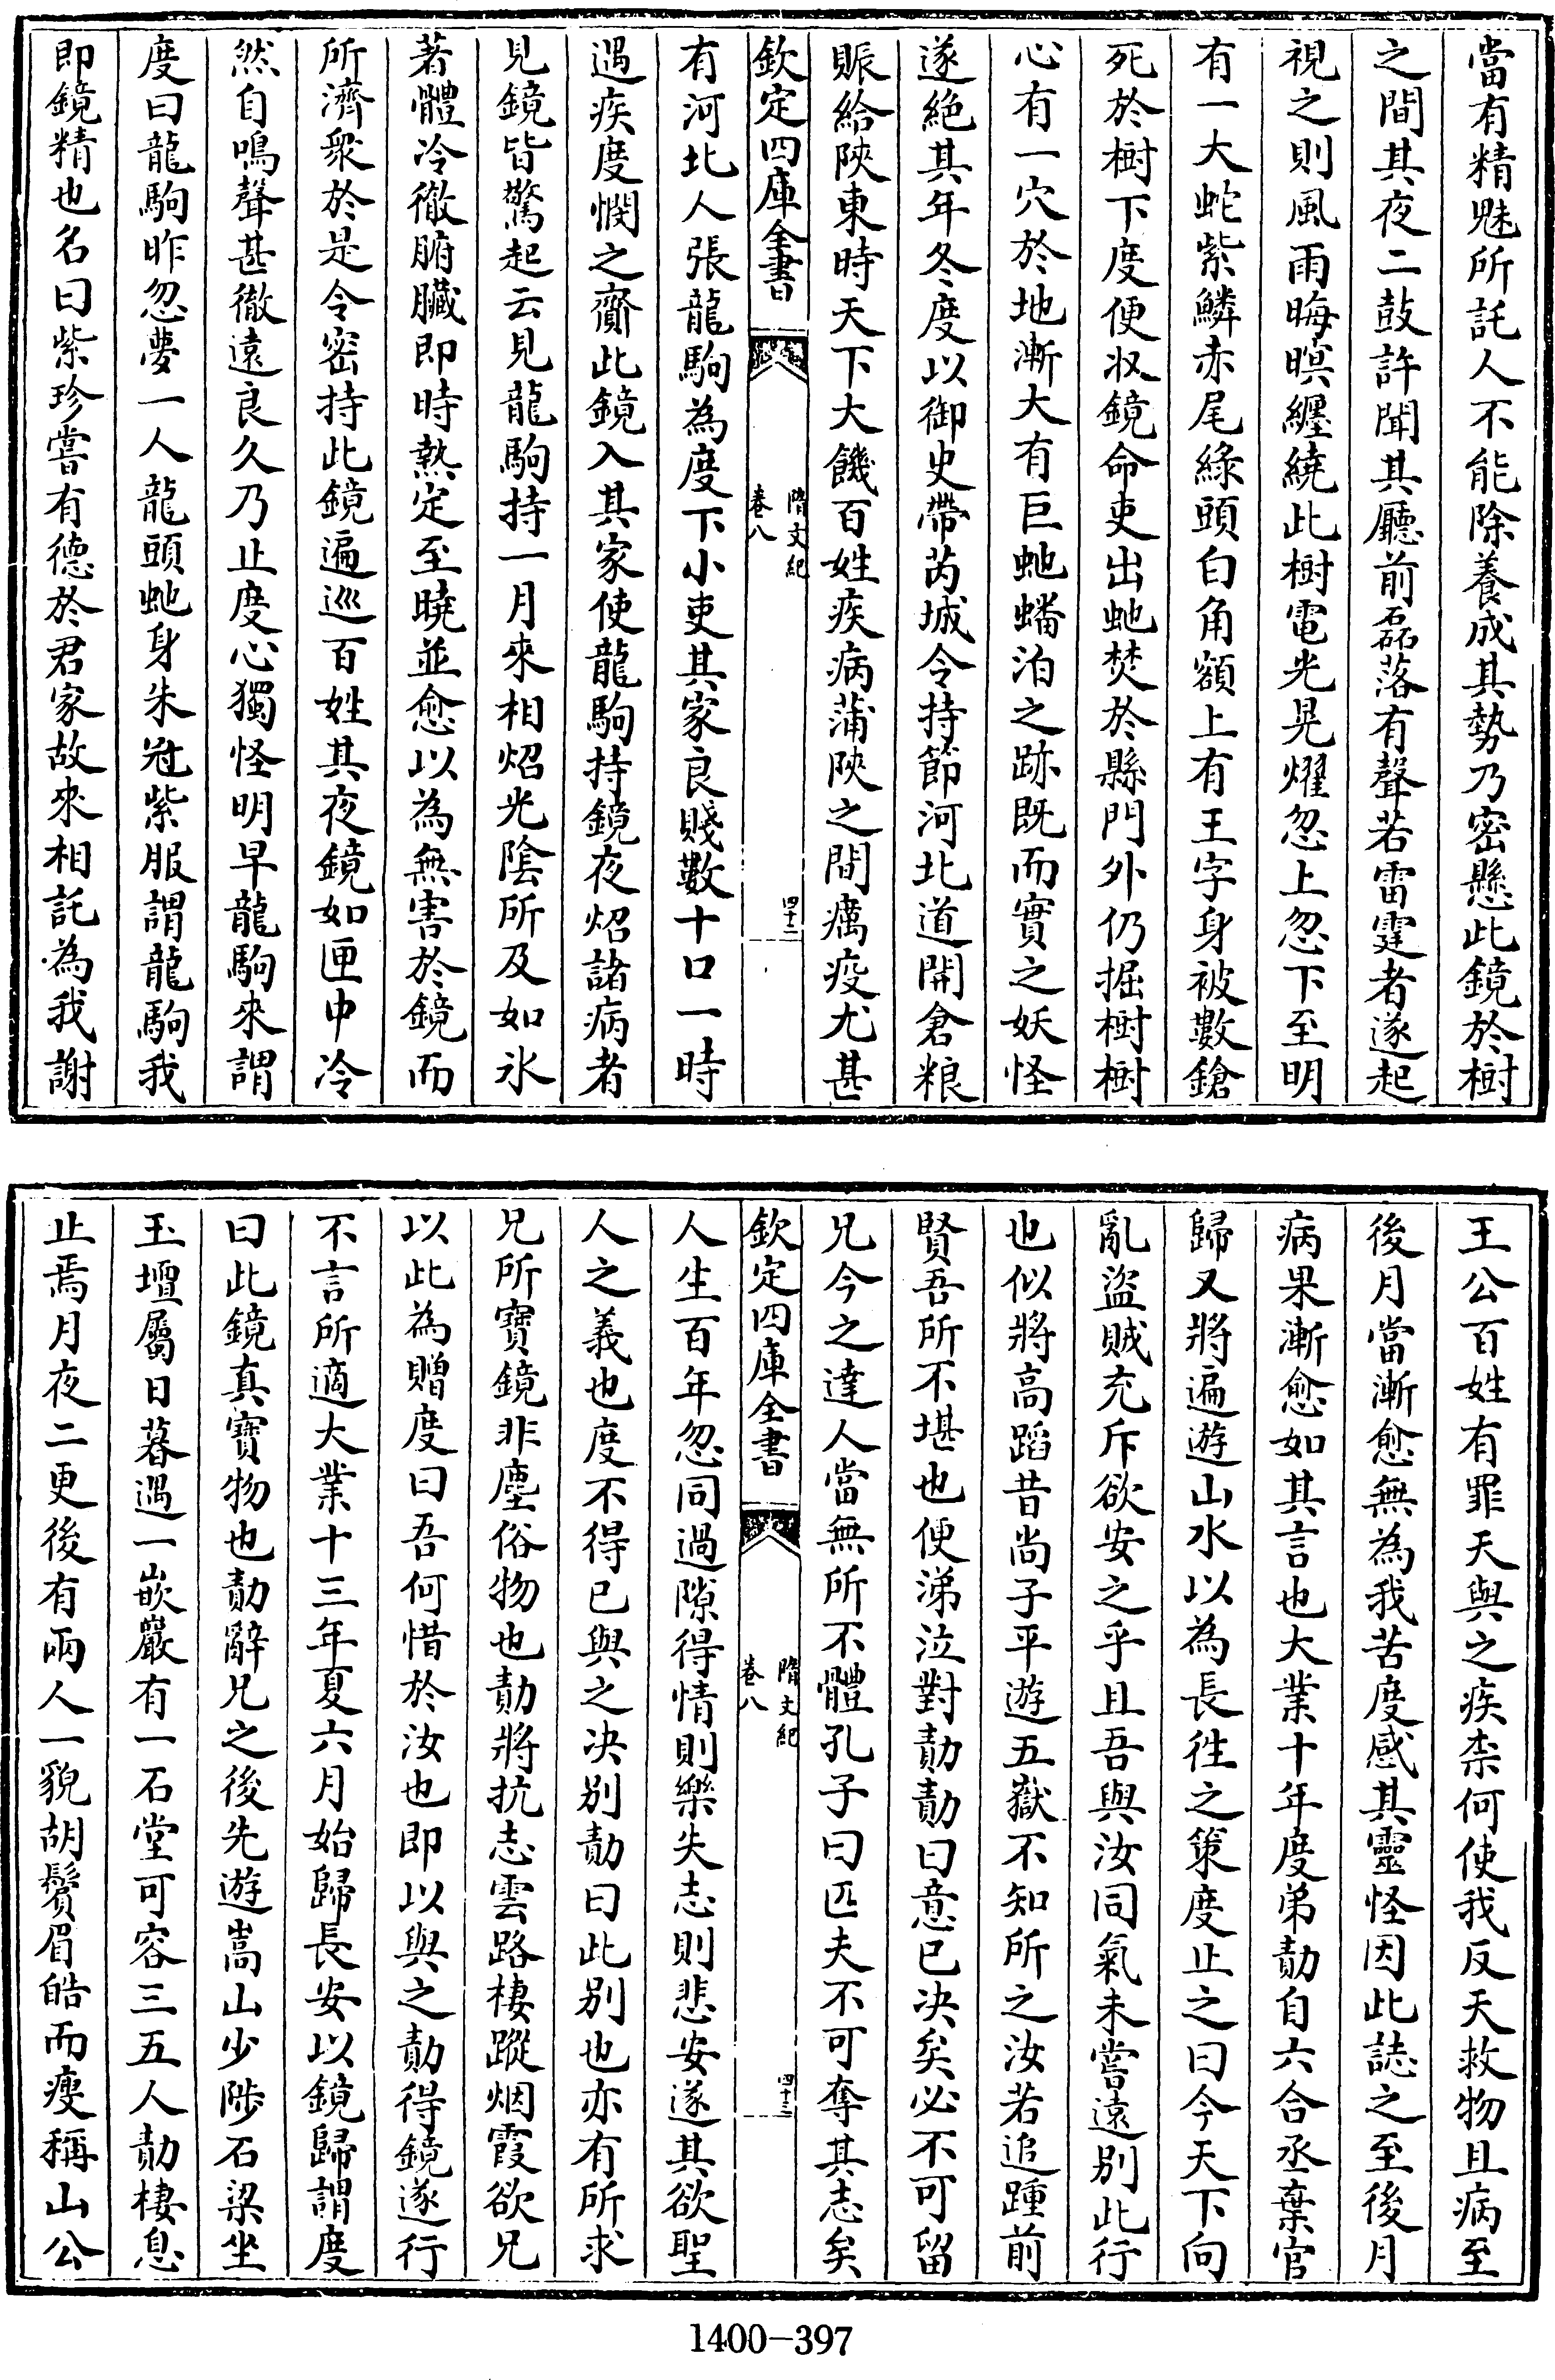 當有精魅所託人不能除養成其勢乃密懸此鏡於樹
之間其夜二鼓許聞其廳前磊落有聲若雷霆者遂起
視之則風雨晦暝纏繞此樹電光晃燿忽上忽下至明
有一大蛇紫鱗赤尾綠頭白角額上有王字身被數鎗
死於樹下度便収鏡命吏出虵焚於縣門外仍掘樹樹
心有一穴於地漸大有巨虵蟠泊之跡既而實之妖怪
遂絕其年冬度以御史帶芮城令持節河北道開倉粮
賑給陜東時天下大饑百姓疾病蒲陜之間癘疫尤甚
欽定四庫全書
隋文紀
卷八
四十二
有河北人張龍駒為度下小吏其家良賤數十口一時
遇疾度憫之齎此鏡入其家使龍駒持鏡夜炤諸病者
見鏡皆驚起云見龍駒持一月來相炤光陰所及如氷
著體冷徹腑臟即時熱定至曉並愈以為無害於鏡而
所濟衆於是令密持此鏡遍巡百姓其夜鏡如匣中冷
然自鳴聲甚徹遠良久乃止度心獨怪明早龍駒來謂
度曰龍駒昨忽夢一人龍頭虵身朱冠紫服謂龍駒我
即鏡精也名曰紫珍嘗有德於君家故來相託為我謝
王公百姓有罪天與之疾柰何使我反天救物且病至
後月當漸愈無為我苦度感其靈怪因此誌之至後月
病果漸愈如其言也大業十年度弟勣自六合丞棄官
歸又將遍遊山水以為長徃之策度止之曰今天下向
亂盜賊充斥欲安之乎且吾與汝同氣未嘗遠別此行
也似將高蹈昔尚子平遊五嶽不知所之汝若追踵前
賢吾所不堪也便涕泣對勣勣曰意已决矣必不可留
兄今之達人當無所不體孔子曰匹夫不可奪其志矣
欽定四庫全書
隋文紀
卷八
四十三
人生百年忽同過隙得情則樂失志則悲安遂其欲聖
人之義也度不得已與之决別勣曰此別也亦有所求
兄所寶鏡非塵俗物也勣將抗志雲路棲蹤烟霞欲兄
以此為贈度曰吾何惜於汝也即以與之勣得鏡遂行
不言所適大業十三年夏六月始歸長安以鏡歸謂度
曰此鏡真寶物也勣辭兄之後先遊嵩山少陟石梁坐
玉壇屬日暮遇一嵌巖有一石堂可容三五人勣棲息
止焉月夜二更後有兩人一貌胡鬢眉皓而瘦稱山公
1400-397